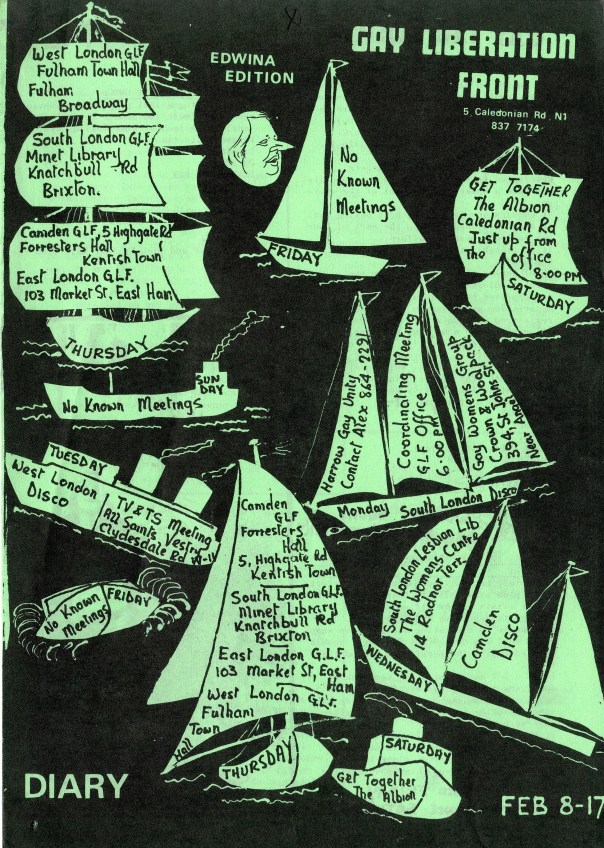 GAY LIBERATION
FRONT
5 Caledonian Rd N1
837 7174
EDWINA
EDITION
West London GLF
Fulham Town Hall
Fulham
Broadway
South London GLF.
Minet Library
Knatchbull Rd
Brixton.
Camden GLF, 5 Highgate Rd
Forresters Hall
Kentish Town
East London G.L.F.
103 Market St, East Ham
THURSDAY
No
Known
Meetings
FRIDAY
GET TOGETHER
The Albion
Caledonian Rd
Just up from
The office
8.00 PM
SATURDAY
SUN
DAY
No Known Meetings
Harrow Gay Unity
Contact Alex 864-2291
Coordinating Meeting
G.L.F Office
6:00 PM
Gay Womens Group
Crown & Woolpack
394, St Johns St
Near Angel
Monday South London Disco
TUESDAY
West London
Disco
TV & TS Meeting
All Saints Vestry
Clydesdale Rd W-11
No Known
Meetings
FRIDAY
Camden
GLF
Forresters
Hall
5, Highgate Rd
Kentish Town
South London GLF.
Minet Library
Knatchbull Rd
Brixton
East London G.L.F.
103 Market St, East
Ham
West London G.L.F.
Fulham
Town
Hall
THURSDAY
South London Lesbian Lib
The Womens Centre
14 Radnor Terr.
Camden
Disco
WEDNESDAY
SATURDAY
Get Together
The Albion
DIARY
FEB 8-17